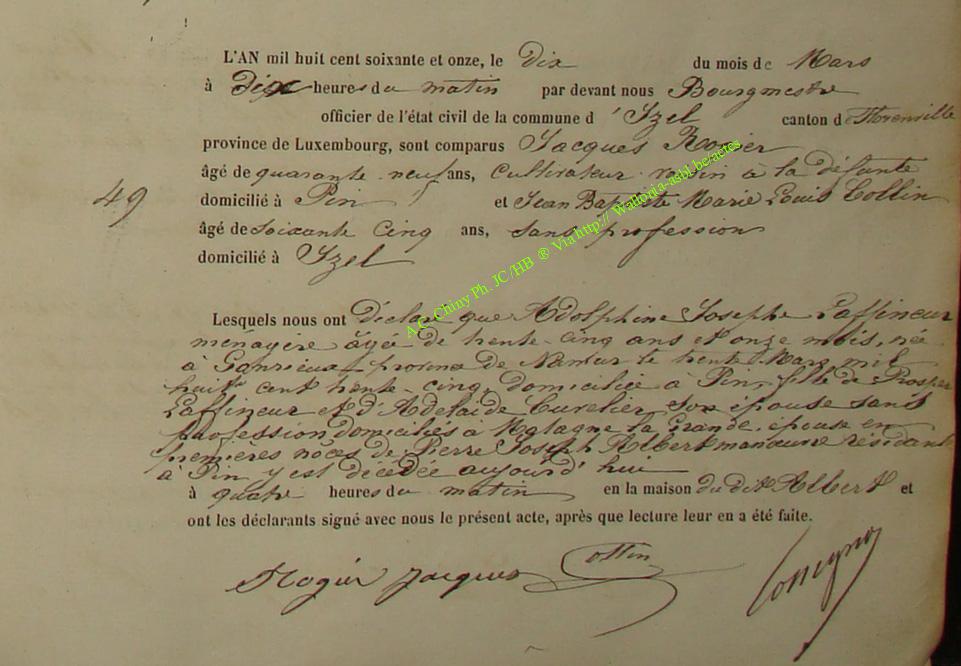 L'AN mil huit cent soixante et onze, le Dix du mois de Mars
à Dix heures du matin par devant nous Bourgmestre
officier de l'état civil de la commune d'Izel canton de Florenville
province de Luxembourg, sont comparus Jacques Rogier
âgé de quarante-neuf ans, Cultivateur voisin à la défunte
49 domicilié à Pin et Jean Baptiste Marie Louis Collin
âgé de soixante cinq ans, sans profession
domicilié à Izel
A.G. Chiny Ph. JC/HB ® Via http:// Wallonia-asbl.be/actes
Lesquels nous ont déclaré que Adolphine Josephe Laffineur
ménagère âgée de trente-cinq ans et onze mois, née
à province de Namur le trente Mars mil
huit cent trente-cinq, domiciliée à Pin, fille de Prosper
Laffineur et d'Adelaïde Curelier, son épouse sans
profession domiciliés à Matagne la Grande, épouse en
premieres nôces de Pierre Joseph Albert manœuvre résidante
à Pin y est décédée aujourd'hui
à quatre heures du matin en la maison du dit Albert et
ont les déclarants signé avec nous le présent acte, après que lecture leur en a été faite.
Rogier Jacques Collin